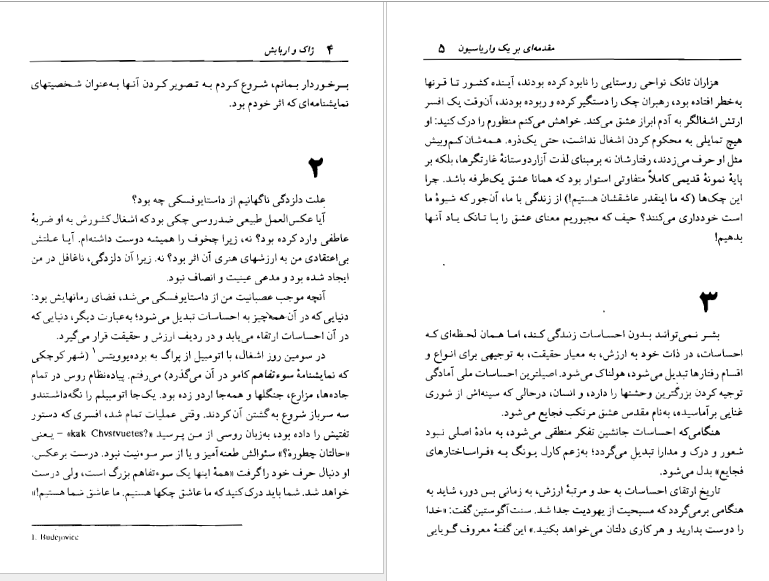 ۴ ژاک و اربابش
برخوردار بمانم، شروع کردم به تصویر کردن آنها به‌عنوان شخصیتهای
نمایشنامه‌ای که اثر خودم بود.
۲
علت دلزدگی ناگهانیم از داستایوفسکی چه بود؟
آیا عکس‌العمل طبیعی ضدروسی چکی بود که اشغال کشورش به او ضربهٔ
عاطفی وارد کرده بود؟ نه، زیرا چخوف را همیشه دوست داشته‌ام. آیا علتش
بی‌اعتقادی من به ارزشهای هنری آن اثر بود؟ نه. زیرا آن دلزدگی، ناغافل در من
ایجاد شده بود و مدعی عینیت و انصاف نبود.
آنچه موجب عصبانیت من از داستایوفسکی می‌شد، فضای رمانهایش بود:
دنیایی که در آن همه‌چیز به احساسات تبدیل می‌شود؛ به‌عبارت دیگر، دنیایی که
در آن احساسات ارتقاء می‌یابد و در ردیف ارزش و حقیقت قرار می‌گیرد.
در سومین روز اشغال، با اتومبیل از پراگ به بوده‌یوویتس۱ (شهر کوچکی
که نمایشنامهٔ سوءتفاهم کامو در آن می‌گذرد) می‌رفتم. پیاده‌نظام روس در تمام
جاده‌ها، مزارع، جنگلها و همه‌جا اردو زده بود. یک‌جا اتومبیلم را نگه‌داشتند و
سه سرباز شروع به گشتن آن کردند. وقتی عملیات تمام شد، افسری که دستور
تفتیش را داده بود، به‌زبان روسی از من پرسید «kak Chvstvuetes?» – یعنی
«حالتان چطوره؟» سئوالش طعنه‌آمیز و یا از سر سوءنیت نبود. درست برعکس.
او دنبال حرف خود را گرفت «همهٔ اینها یک سوءتفاهم بزرگ است، ولی درست
خواهد شد. شما باید درک کنید که ما عاشق چکها هستیم. ما عاشق شما هستیم!»
1. Budejovice
مقدمه‌ای بر یک واریاسیون ۵
هزاران تانک نواحی روستایی را نابود کرده بودند، آینده کشور تا قرنها
به‌خطر افتاده بود، رهبران چک را دستگیر کرده و ربوده بودند، آن‌وقت یک افسر
ارتش اشغالگر به آدم ابراز عشق می‌کند. خواهش می‌کنم منظورم را درک کنید: او
هیچ تمایلی به محکوم کردن اشغال نداشت، حتی یک‌ذره. همه‌شان کم‌وبیش
مثل او حرف می‌زدند، رفتارشان نه برمبنای لذت آزاردوستانهٔ غارتگرها، بلکه بر
پایهٔ نمونهٔ قدیمی کاملاً متفاوتی استوار بود که همانا عشق یک‌طرفه باشد. چرا
این چک‌ها (که ما اینقدر عاشقشان هستیم!) از زندگی با ما، آن‌جور که شیوهٔ ما
است خودداری می‌کنند؟ حیف که مجبوریم معنای عشق را با تانک یاد آنها
بدهیم!
۳
بشر نمی‌تواند بدون احساسات زندگی کند، اما همان لحظه‌ای که
احساسات، در ذات خود به ارزش، به معیار حقیقت، به توجیهی برای انواع و
اقسام رفتارها تبدیل می‌شود، هولناک می‌شود. اصیلترین احساسات ملی آمادگی
توجیه کردن بزرگترین وحشتها را دارد، و انسان، درحالی که سینه‌اش از شوری
غنایی برآماسیده، به‌نام مقدس عشق مرتکب فجایع می‌شود.
هنگامی‌که احساسات جانشین تفکر منطقی می‌شود، به مادهٔ اصلی نبود
شعور و درک و مدارا تبدیل می‌گردد؛ به‌زعم کارل یونگ به «فراساختارهای
فجایع» بدل می‌شود.
تاریخ ارتقای احساسات به حد و مرتبهٔ ارزش، به زمانی بس دور، شاید به
هنگامی برمی‌گردد که مسیحیت از یهودیت جدا شد. سنت آگوستین گفت: «خدا
را دوست بدارید و هر کاری دلتان می‌خواهد بکنید.» این گفتهٔ معروف گویایی